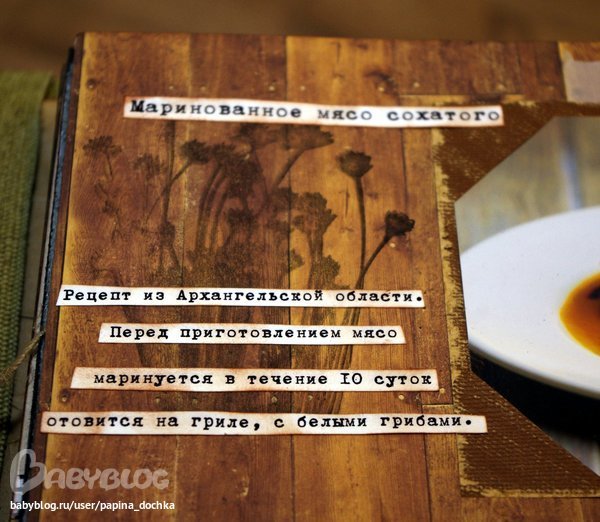 Маринованное мясо сохатого
Рецепт из Архангельской области.
Перед приготовлением мясо
маринуется в течение 10 суток
отовится на гриле, с белыми грибами.
BABYBLOG
babyblog.ru/user/papina_dochka